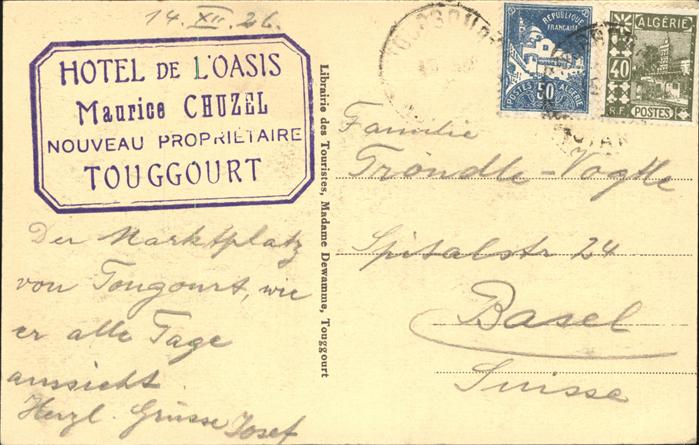 14. XII. 26.
HOTEL DE L'OASIS
Maurice CHUZEL
NOUVEAU PROPRIETAIRE
TOUGGOURT
Der Marktplatz
von Tougourt, wie
er alle Tage
aussieht.
Herzl. Grüsse Josef
Librairie des Touristes, Madame Dewamme, Touggourt
REPUBLIQUE
FRANCAISE
POSTES ALGERIE
50
ALGÉRIE
40
R.F. POSTES
Familie
Tröndle-Vogtle
Spitalstr 24
Basel
Suisse